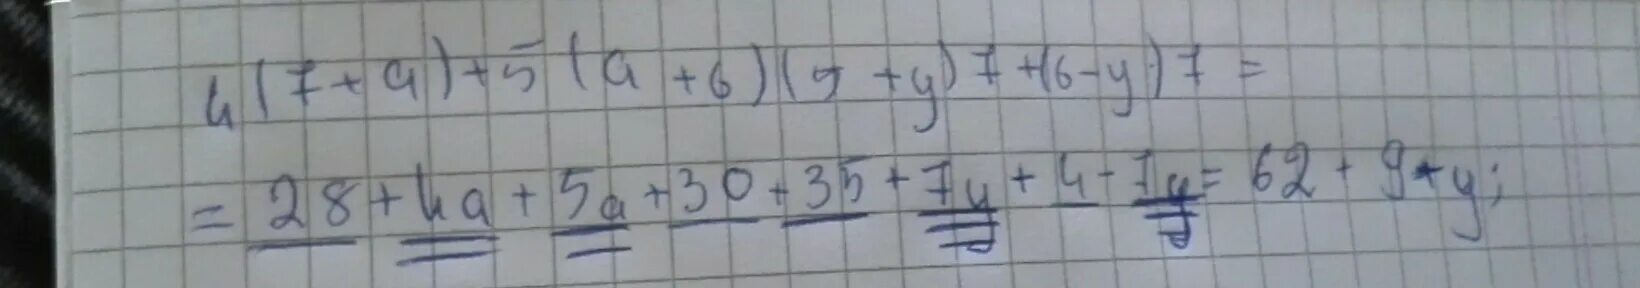 4(7+a)+5(a+6)(5+y)7+(6-y)7=
=28+4a+5a+30+35+7y+4-7y=62+9+y;